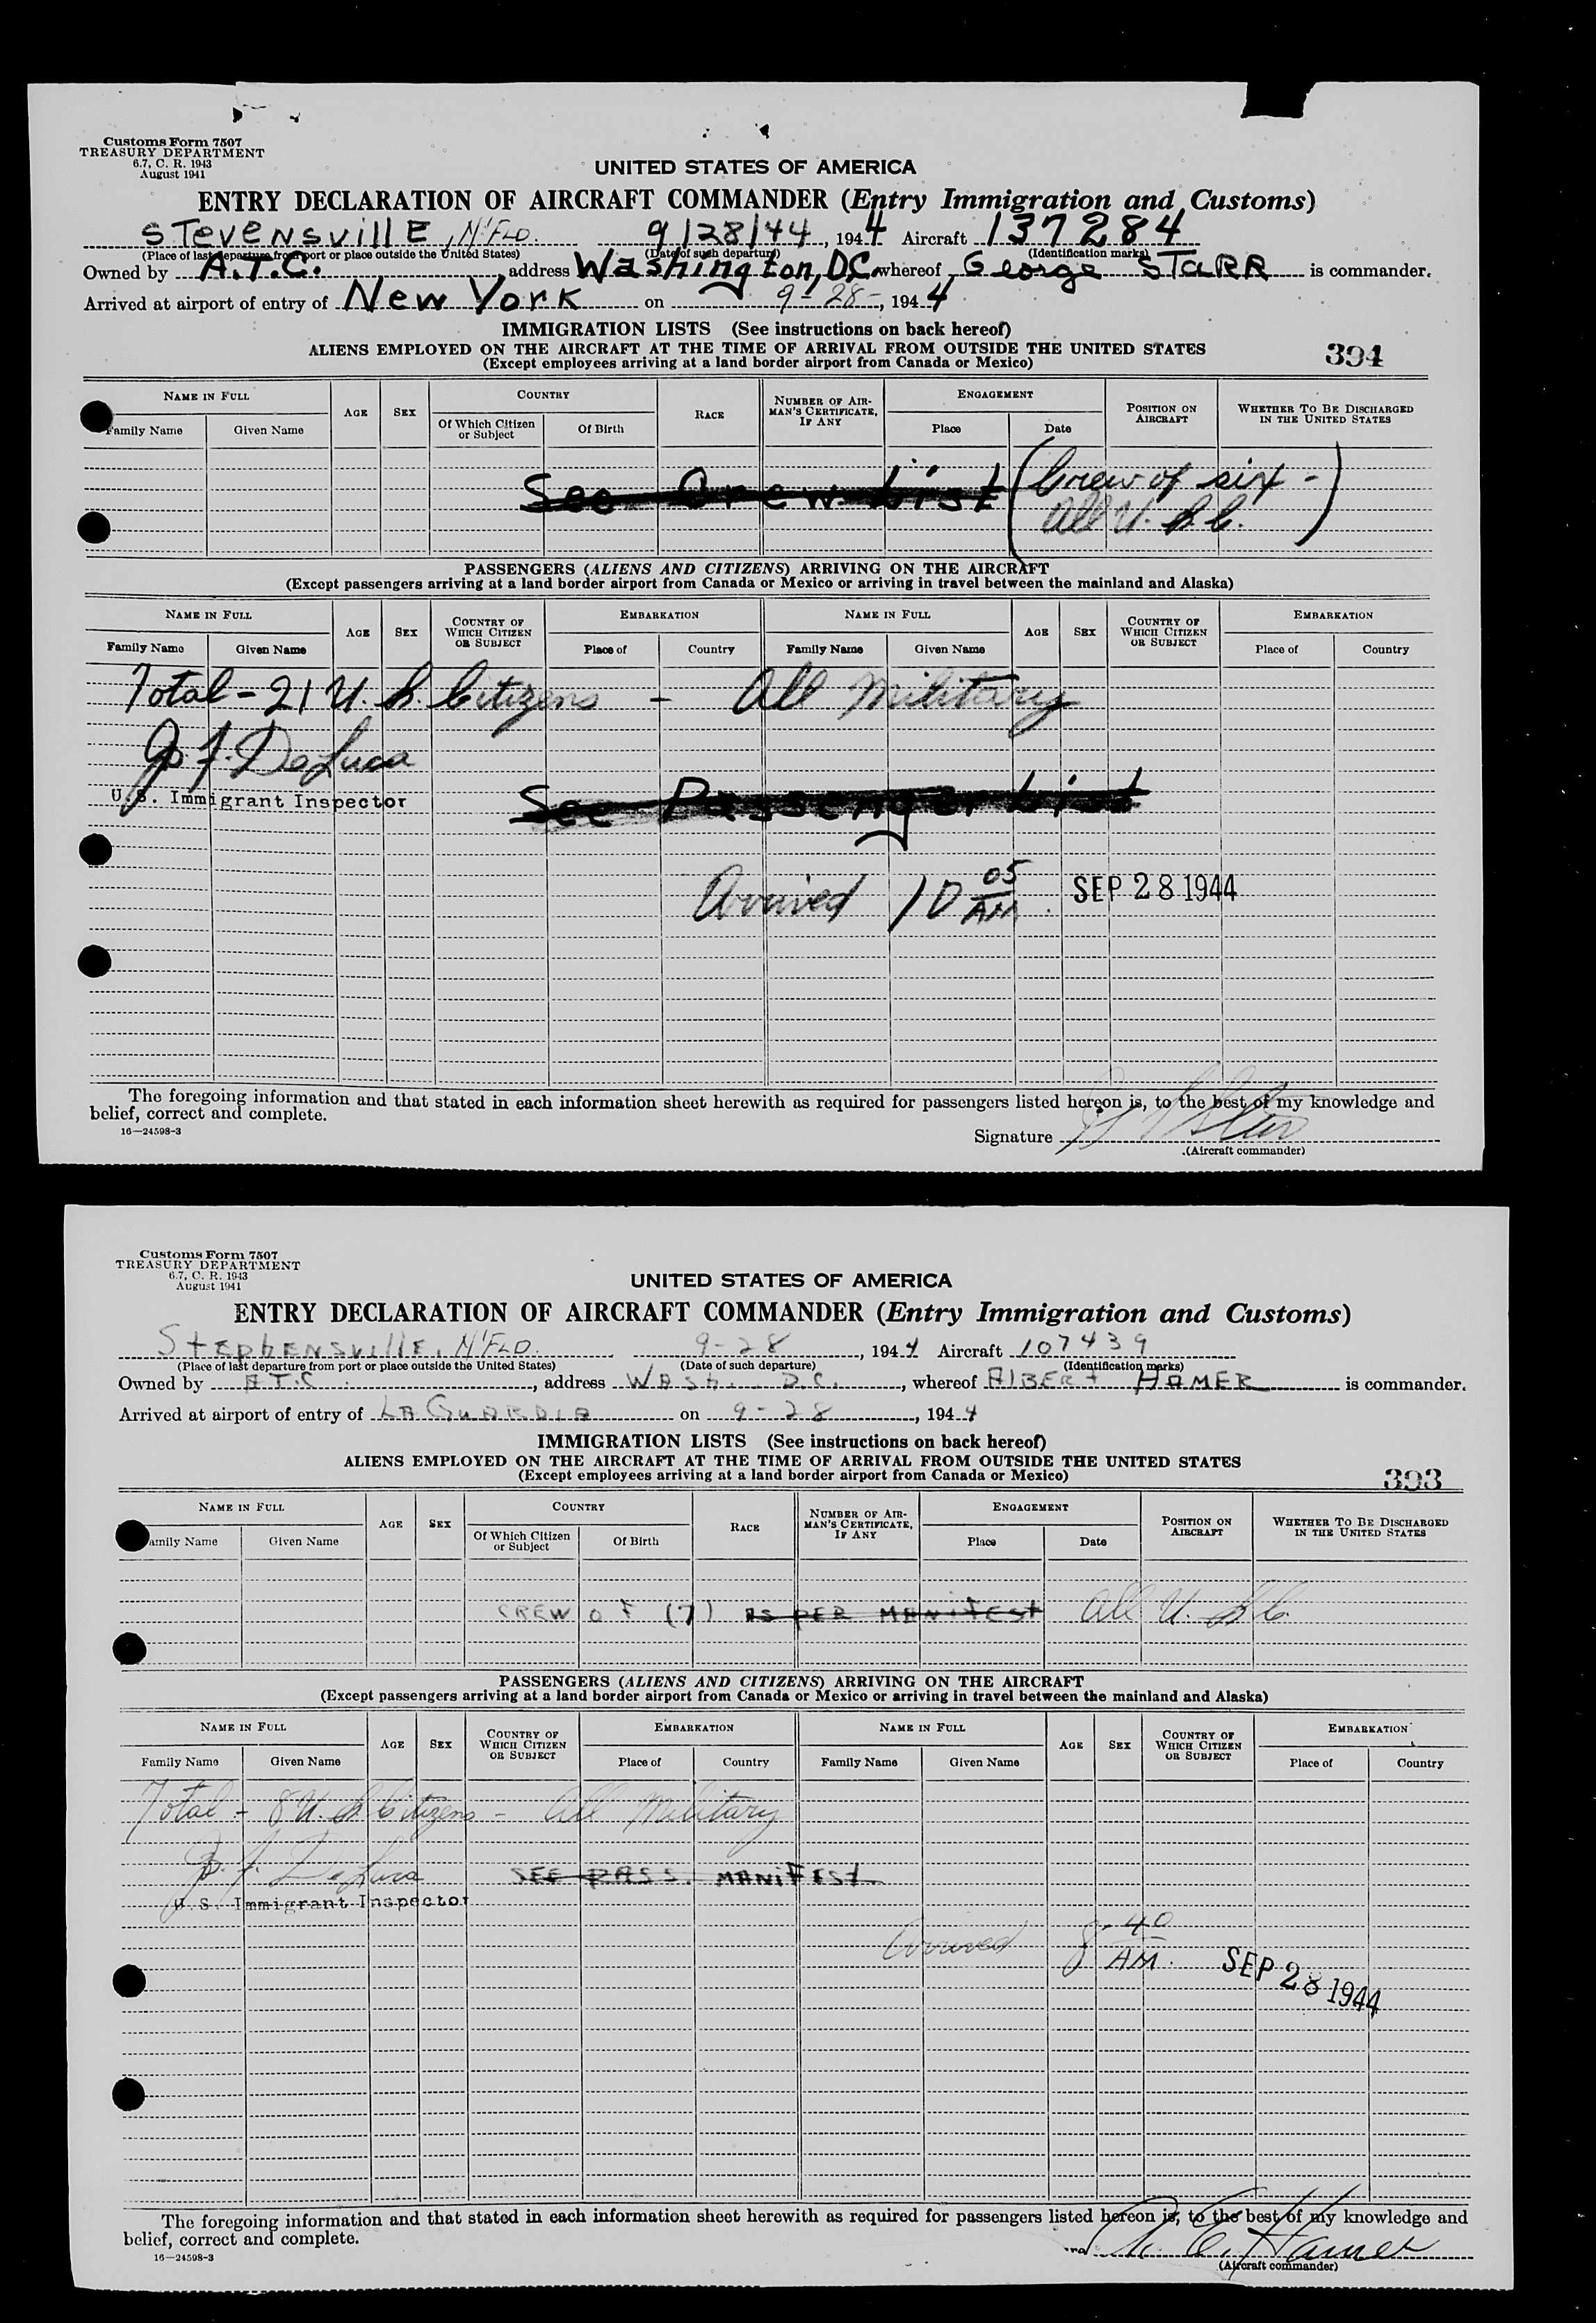 Customs Form 7507
TREASURY DEPARTMENT
6.7, C. R. 1943
August 1941
UNITED STATES OF AMERICA
ENTRY DECLARATION OF AIRCRAFT COMMANDER (Entry Immigration and Customs)
STevensvillE, N'FLD. 9/28/44, 1944 Aircraft 137284
(Place of last departure from port or place outside the United States) (Date of such departure) (Identification marks)
Owned by A.T.C., address Washington, D.C. whereof George STaRR is commander.
Arrived at airport of entry of New York on 9-28-, 1944
IMMIGRATION LISTS (See instructions on back hereof)
ALIENS EMPLOYED ON THE AIRCRAFT AT THE TIME OF ARRIVAL FROM OUTSIDE THE UNITED STATES
(Except employees arriving at a land border airport from Canada or Mexico)
394
NAME IN FULL AGE SEX COUNTRY RACE NUMBER OF AIRMAN'S CERTIFICATE, IF ANY ENGAGEMENT POSITION ON AIRCRAFT WHETHER TO BE DISCHARGED IN THE UNITED STATES
Family Name Given Name Of Which Citizen or Subject Of Birth Place Date
See Crew List (Crew of six -
All U.S.C.)
PASSENGERS (ALIENS AND CITIZENS) ARRIVING ON THE AIRCRAFT
(Except passengers arriving at a land border airport from Canada or Mexico or arriving in travel between the mainland and Alaska)
NAME IN FULL AGE SEX COUNTRY OF WHICH CITIZEN OR SUBJECT EMBARKATION NAME IN FULL AGE SEX COUNTRY OF WHICH CITIZEN OR SUBJECT EMBARKATION
Family Name Given Name Place of Country Family Name Given Name Place of Country
Total - 21 U.S. Citizens - All Military
J. F. DeLuca
U.S. Immigrant Inspector
See Passenger List
Arrived 10 05 AM. SEP 28 1944
The foregoing information and that stated in each information sheet herewith as required for passengers listed hereon is, to the best of my knowledge and
belief, correct and complete.
16—24598-3
Signature
(Aircraft commander)
Customs Form 7507
TREASURY DEPARTMENT
6.7, C. R. 1943
August 1941
UNITED STATES OF AMERICA
ENTRY DECLARATION OF AIRCRAFT COMMANDER (Entry Immigration and Customs)
StephENsvillE, N'FLD. 9-28, 1944 Aircraft 107439
(Place of last departure from port or place outside the United States) (Date of such departure) (Identification marks)
Owned by A.T.C., address WAsh. D.C., whereof AlBERt HAMER is commander.
Arrived at airport of entry of LAGUARDIA on 9-28, 1944
IMMIGRATION LISTS (See instructions on back hereof)
ALIENS EMPLOYED ON THE AIRCRAFT AT THE TIME OF ARRIVAL FROM OUTSIDE THE UNITED STATES
(Except employees arriving at a land border airport from Canada or Mexico)
393
NAME IN FULL AGE SEX COUNTRY RACE NUMBER OF AIRMAN'S CERTIFICATE, IF ANY ENGAGEMENT POSITION ON AIRCRAFT WHETHER TO BE DISCHARGED IN THE UNITED STATES
Family Name Given Name Of Which Citizen or Subject Of Birth Place Date
CREW OF (7) AS PER MANiFEst All U.S.C.
PASSENGERS (ALIENS AND CITIZENS) ARRIVING ON THE AIRCRAFT
(Except passengers arriving at a land border airport from Canada or Mexico or arriving in travel between the mainland and Alaska)
NAME IN FULL AGE SEX COUNTRY OF WHICH CITIZEN OR SUBJECT EMBARKATION NAME IN FULL AGE SEX COUNTRY OF WHICH CITIZEN OR SUBJECT EMBARKATION
Family Name Given Name Place of Country Family Name Given Name Place of Country
Total - 8 U.S. Citizens - All Military
J. F. DeLuca SEE PASS. MANiFESt
U.S. Immigrant Inspector
Arrived 8-40 AM. SEP 28 1944
The foregoing information and that stated in each information sheet herewith as required for passengers listed hereon is, to the best of my knowledge and
belief, correct and complete.
16—24598-3
Hamer
(Aircraft commander)